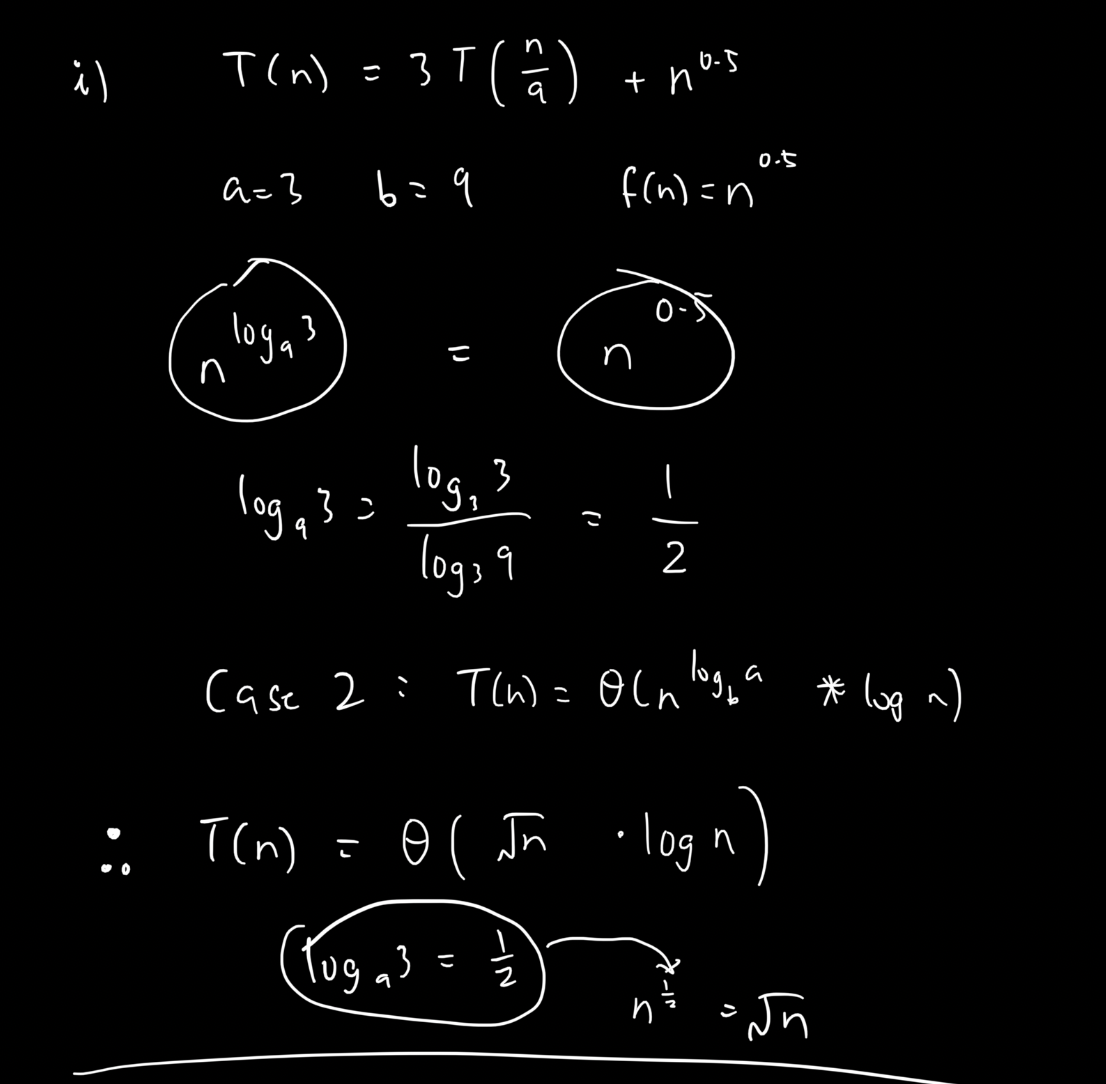 i) T(n) = 3T(n/9) + n^0.5
a=3 b=9 f(n)=n^0.5
n^log₉3 = n^0.5
log₉3 = log₃3 / log₃9 = 1/2
Case 2 : T(n) = θ(n^log_b a * log n)
∴ T(n) = θ(√n · log n)
log₉3 = 1/2
n^1/2 = √n